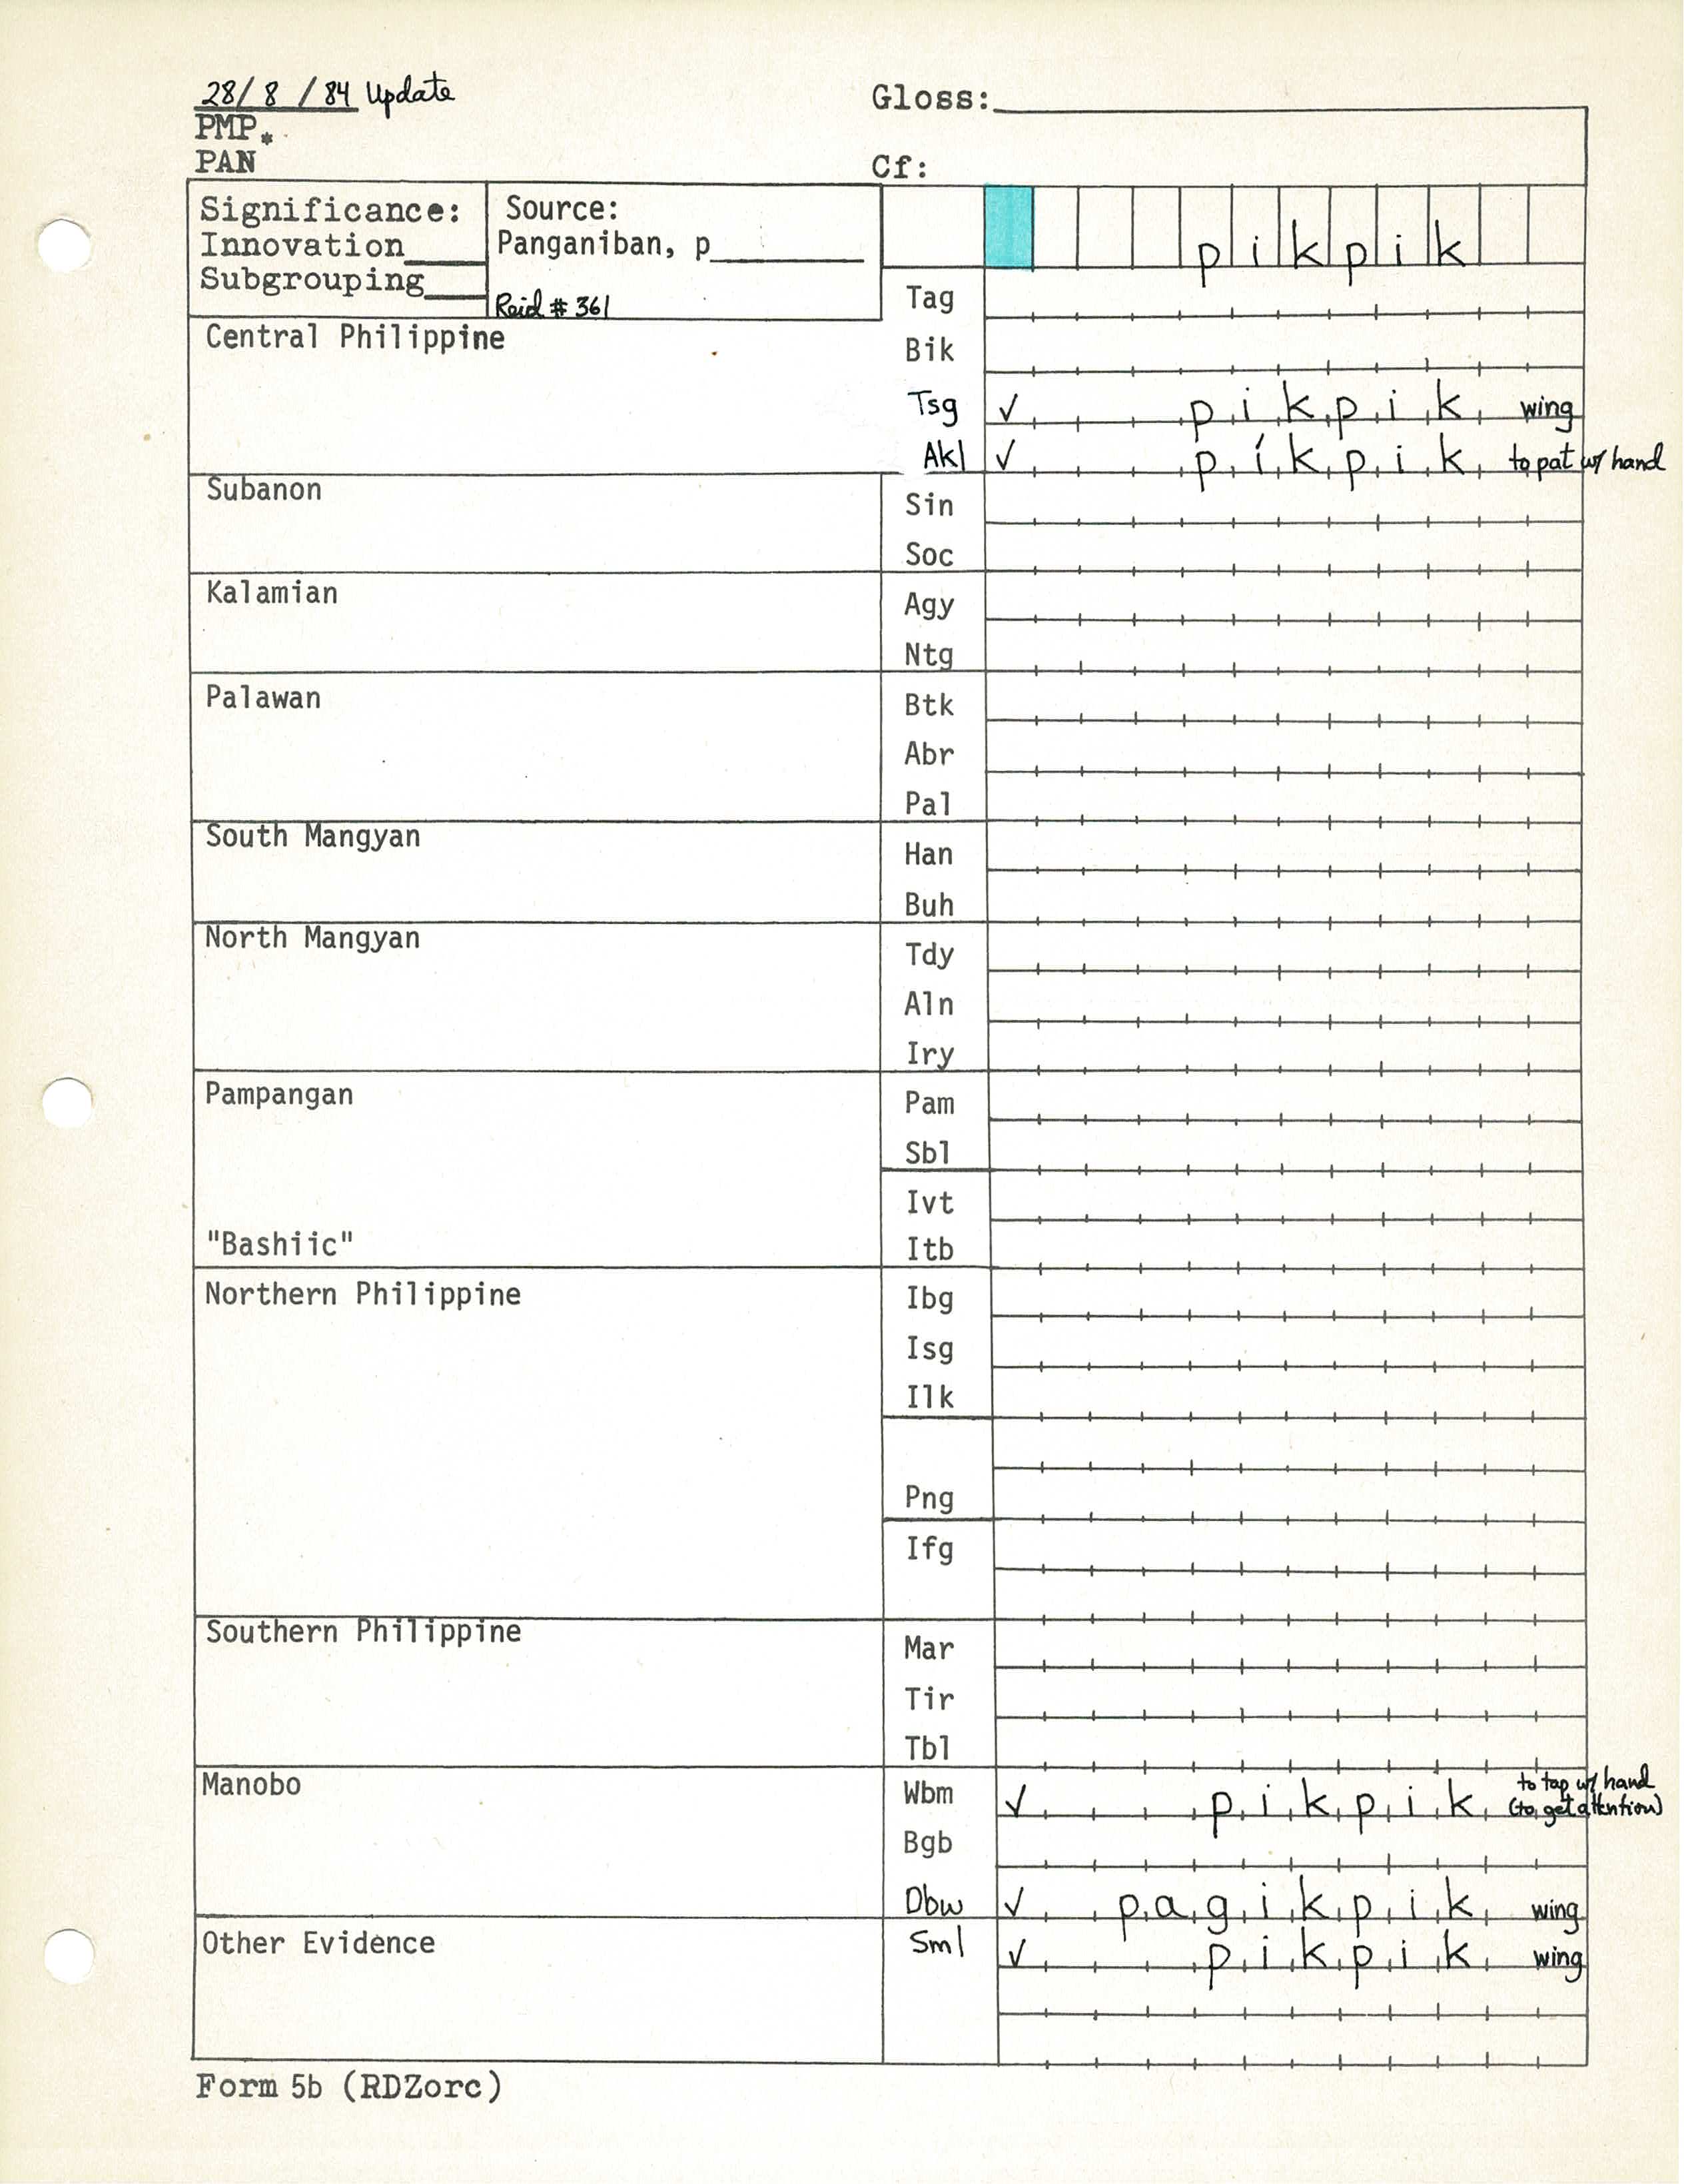 28/ 8 / 84 Update
Gloss:
PMP *
PAN
Cf:
Significance:
Innovation
Subgrouping
Source:
Panganiban, p
Reid # 361
pikpik
Tag
Central Philippine
Bik
Tsg ✓ pikpik wing
Akl ✓ píkpik to pat w/ hand
Subanon
Sin
Soc
Kalamian
Agy
Ntg
Palawan
Btk
Abr
Pal
South Mangyan
Han
Buh
North Mangyan
Tdy
Aln
Iry
Pampangan
Pam
Sbl
Ivt
"Bashiic"
Itb
Northern Philippine
Ibg
Isg
Ilk
Png
Ifg
Southern Philippine
Mar
Tir
Tbl
Manobo
Wbm ✓ pikpik to tap w/ hand (to get attention)
Bgb
Dbw ✓ pagikpik wing
Other Evidence
Sml ✓ pikpik wing
Form 5b (RDZorc)